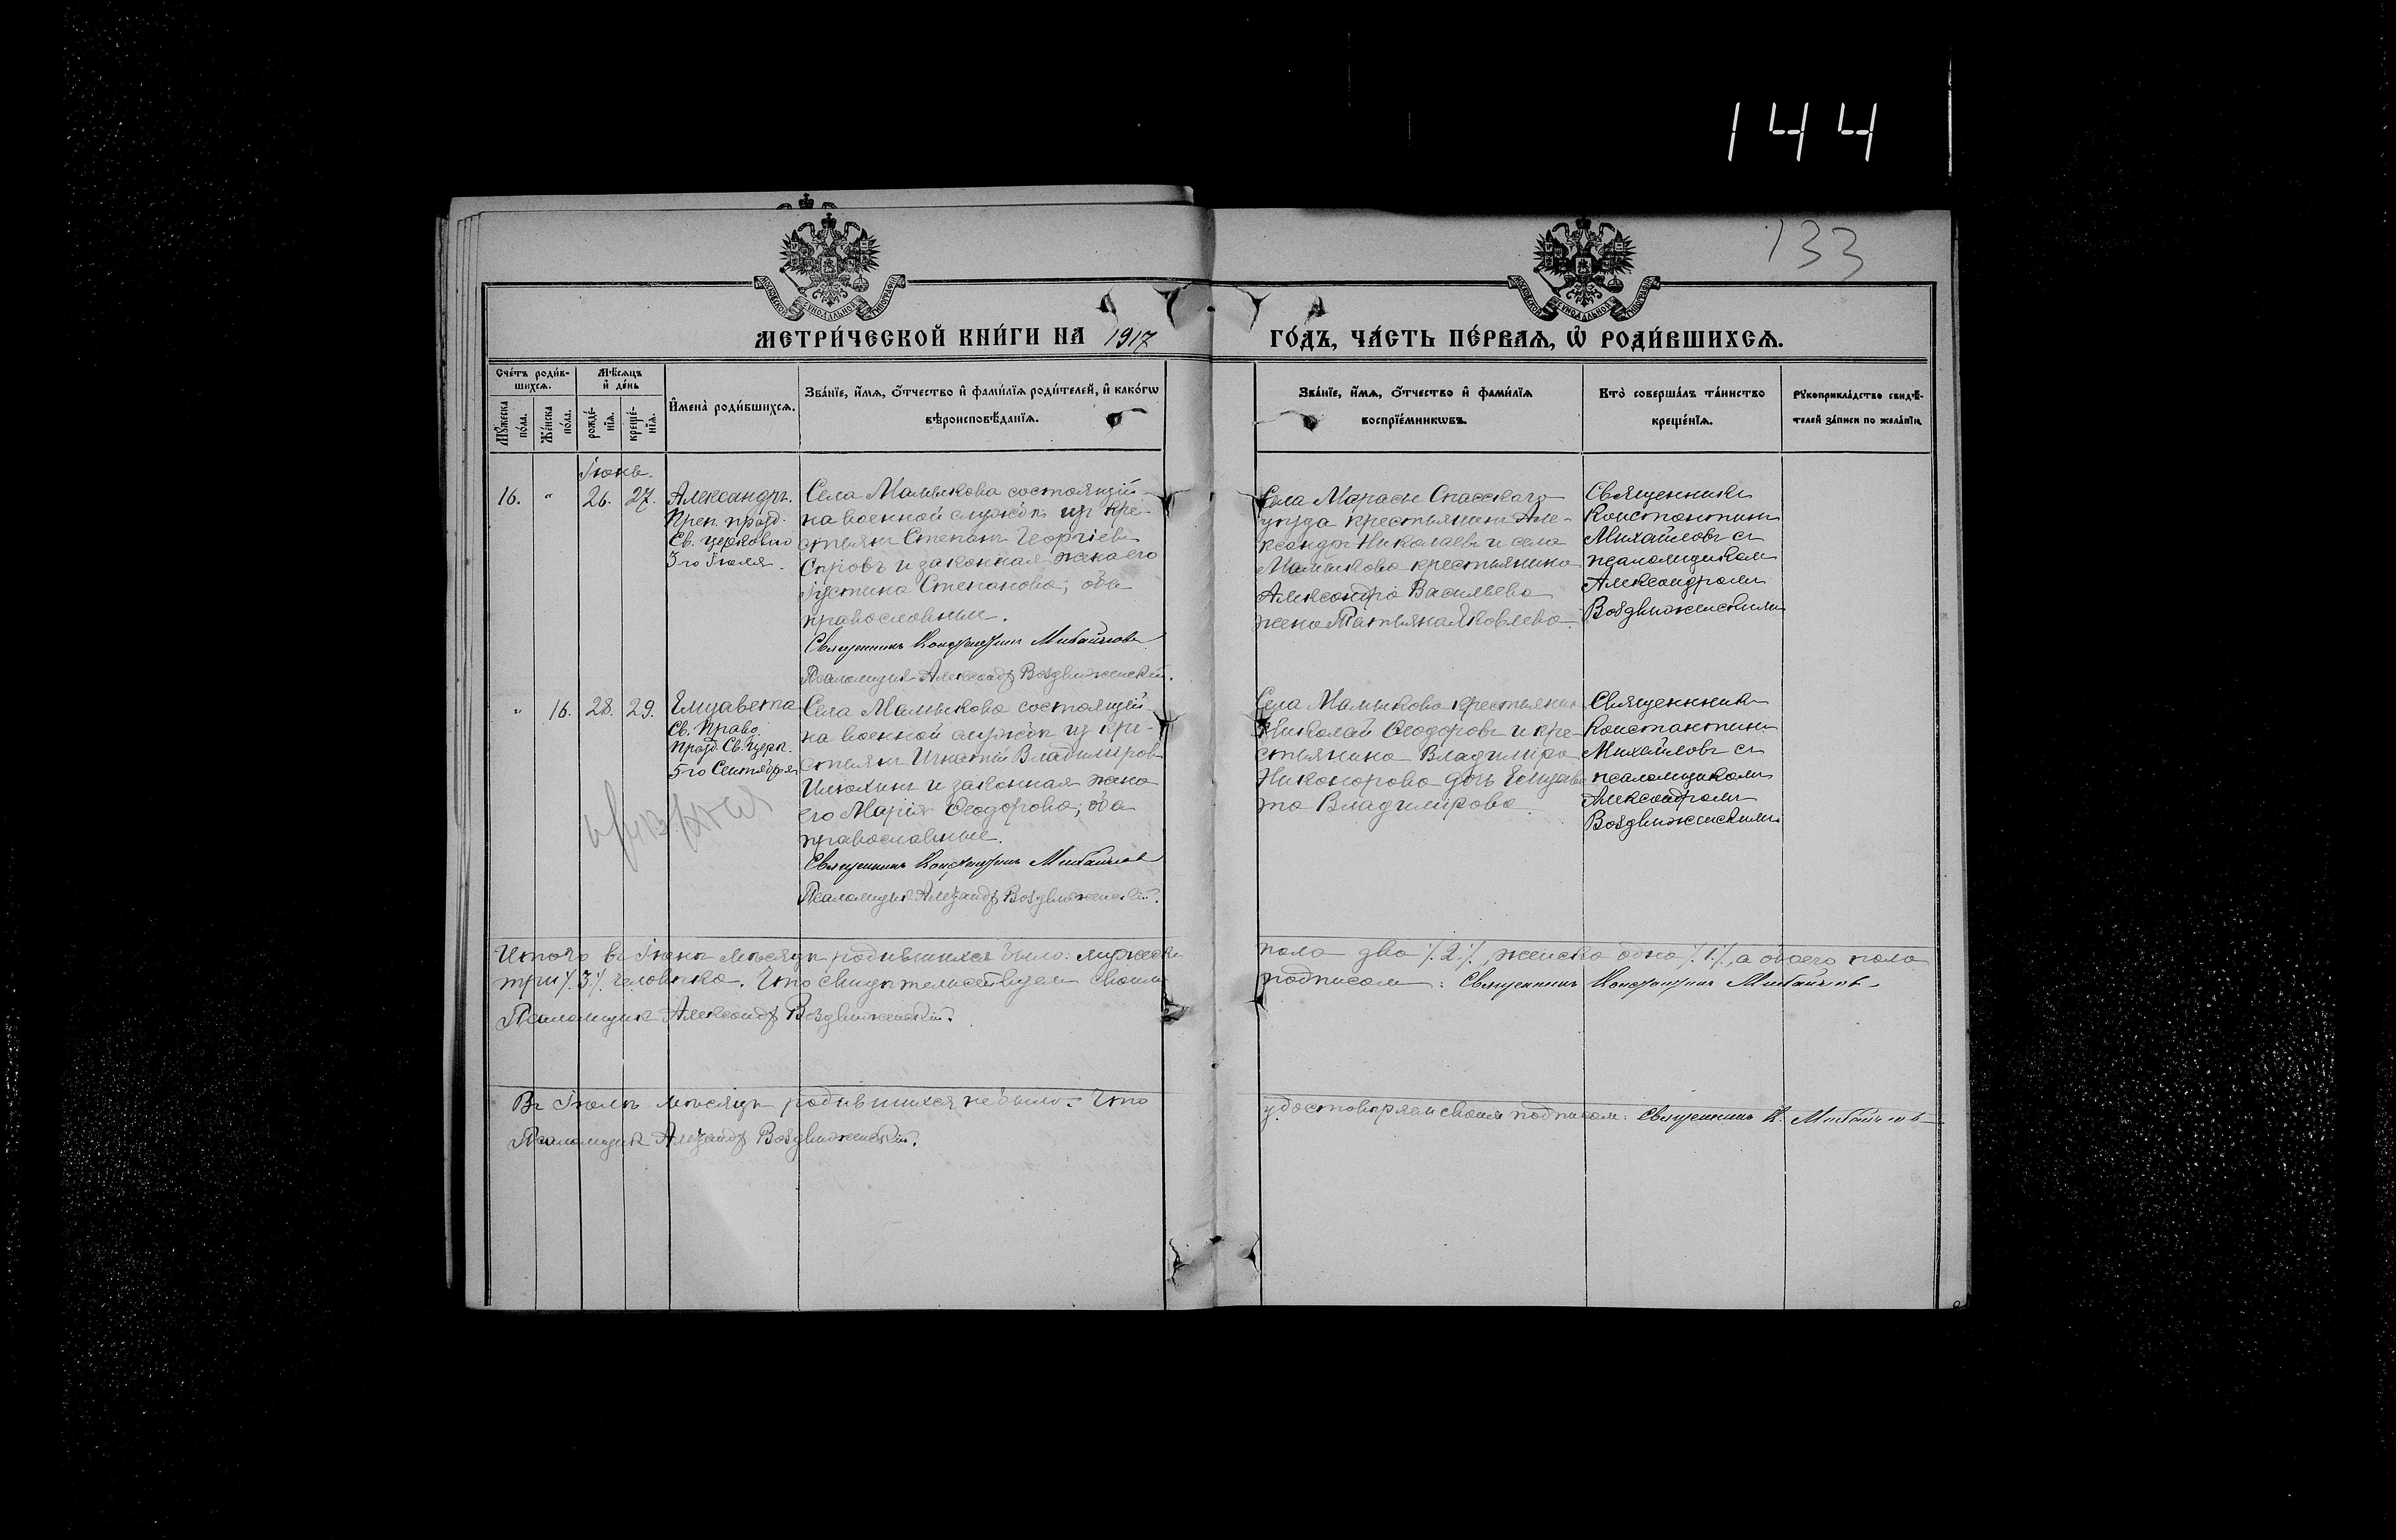 144
133
МОСКОВСКОЙ СѴНОДАЛЬНОЙ ТИПОГРАФІИ
МОСКОВСКОЙ СѴНОДАЛЬНОЙ ТИПОГРАФІИ
МЕТРИ́ЧЕСКОЙ КНИ́ГИ НА 1917
ГО́ДЪ, ЧА́СТЬ ПЕ́РВАѦ, Ѡ РОДИ́ВШИХСѦ.
Сче́тъ роди́в-
шихсѧ.
Мѣ́сѧцъ
и де́нь
Мꙋ́жеска по́ла.
Же́нска по́ла.
рожде́-
нїѧ.
креще́-
нїѧ.
Имена̀ роди́вшихсѧ.
Зва́нїе, и́мѧ, о́тчество и фами́лїѧ роди́телей, и како́гѡ
вѣроисповѣ́данїѧ.
Зва́нїе, и́мѧ, о́тчество и фами́лїѧ
воспрїе́мникѡвъ.
Кто̀ соверша́лъ та́инство
креще́нїѧ.
Рꙋкоприкла́дство свидѣ́-
телей за́писи по жела́нїю.
Іюнь.
16. " 26. 27.
Александръ.
Преп. празд.
Св. церковію
3го Іюля.
Села Мамыкова состоящій
на военной службѣ изъ кре-
стьянъ Степанъ Георгіевъ
и законная жена его
Іустина Степанова; оба
православные.
Священникъ Константинъ Михайловъ
Псаломщикъ Александръ Воздвиженскій.
Села Мараси Спасскаго
уѣзда крестьянинъ Але-
ксандръ Николаевъ и села
Мамыкова крестьянина
Александра Васильева
жена Татьяна Яковлева.
Священникъ
Константинъ
Михайловъ съ
псаломщикомъ
Александромъ
Воздвиженскимъ
" 16. 28. 29.
Елизавета
Св. Прав.
празд. Св. церк.
5го Сентября
Села Мамыкова состоящій
на военной службѣ изъ кре-
стьянъ Игнатій Владиміровъ
Илюхинъ и законная жена
его Марія Ѳеодорова; оба
православные.
Священникъ Константинъ Михайловъ
Псаломщикъ Александръ Воздвиженскій.
Села Мамыкова крестьянинъ
Николай Ѳеодоровъ и кре-
стьянина Владиміра
Никонорова дочь Елизаве
та Владимірова.
Священникъ
Константинъ
Михайловъ съ
псаломщикомъ
Александромъ
Воздвиженскимъ
Итого въ Іюнѣ мѣсяцѣ родившихся было: мужеска
пола два ٪ 2 ٪, женска одна ٪ 1 ٪, а обоего пола
три ٪ 3 ٪ человѣка. Что свидѣтельствуемъ своимъ
подписомъ: Священникъ Константинъ Михайловъ
Псаломщикъ Александръ Воздвиженскій.
Въ Іюлѣ мѣсяцѣ родившихся не было. Что
удостовѣряемъ своимъ подписомъ: Священникъ К. Михайловъ
Псаломщикъ Александръ Воздвиженскій.